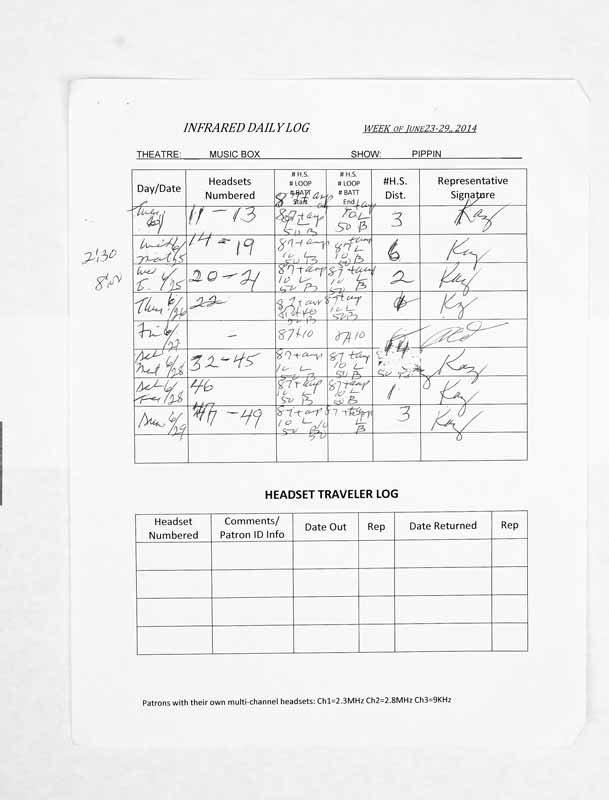 INFRARED DAILY LOG WEEK OF JUNE23-29, 2014
THEATRE: MUSIC BOX SHOW: PIPPIN
Day/Date Headsets Numbered # H.S. # LOOP # BATT Start # H.S. # LOOP # BATT End #H.S. Dist. Representative Signature
11-13 50 B 50 B 3 Kay
2:30 14-19 87+amp 10 L 50 B 87+amp 10 L 50 B 6 Kay
8:00 6/25 20-21 87+amp 10 L 50 B 87+amp 10 L 50 B 2 Kay
Thu 6/26 22 87+amp 10 L 50 B 1 Kay
Fri 6/27 - 87+10 87+10
Sat 6/28 32-45 87+amp 10 L 50 B 87+amp 10 L 50 B 14 Kay
Sat 6/28 46 87+amp 10 L 50 B 87+amp 10 L 50 B 1 Kay
Sun 6/29 47-49 87+amp 10 L 50 B 3 Kay
HEADSET TRAVELER LOG
Headset Numbered Comments/ Patron ID Info Date Out Rep Date Returned Rep
Patrons with their own multi-channel headsets: Ch1=2.3MHz Ch2=2.8MHz Ch3=9KHz